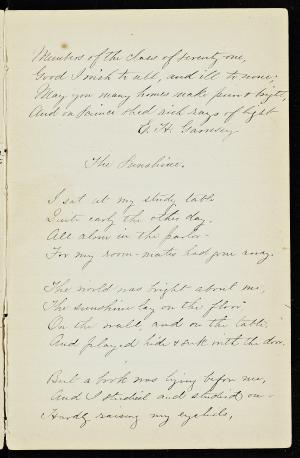 Members of the class of seventy one,
Good I wish to all, and ill to none;
May you many homes make pure & bright,
And on Prince shed rich rays of light
E. H. Garnsey
The Sunshine.
I sat at my study table
Quite early the other day.
All alone in the parlor
For my room-mates had gone away.
The world was bright about me,
The sunshine lay on the floor,
On the wall, and on the table,
And played hide & seek with the door.
But a book was lying before me,
And I studied and studied on
Hardly raising my eyelids,